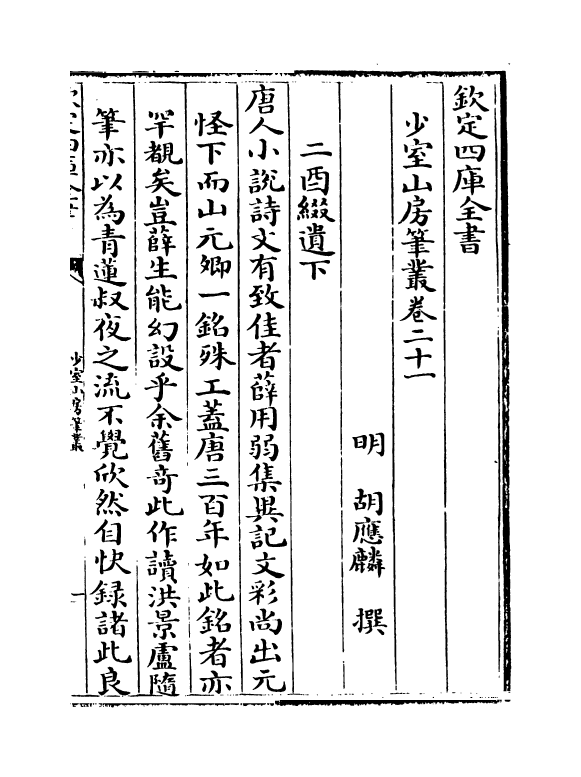 欽定四庫全書
少室山房筆叢卷二十一
明 胡應麟 撰
二酉綴遺下
唐人小說詩文有致佳者薛用弱集異記文彩尚出元
怪下而山元卿一銘殊工蓋唐三百年如此銘者亦
罕覩矣豈薛生能幻設乎余舊奇此作讀洪景盧隨
筆亦以為青蓮叔夜之流不覺欣然自快録諸此良
少室山房筆叢
一